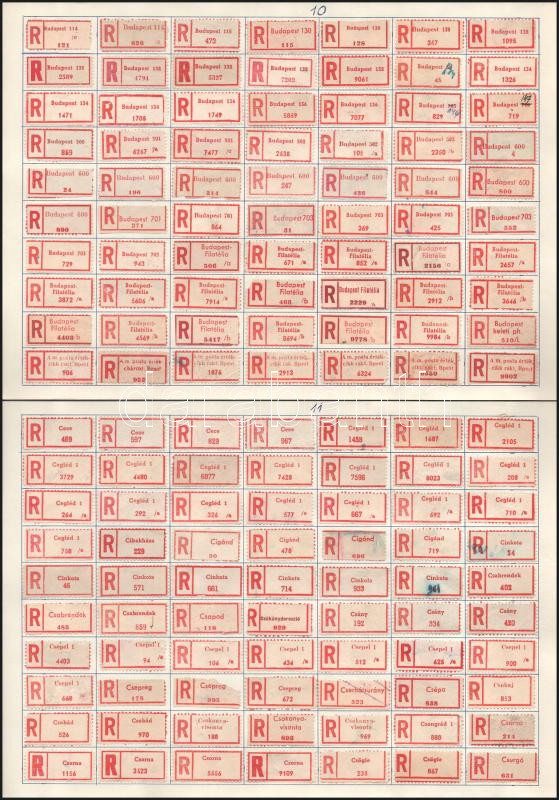 10
R Budapest 114 121
R Budapest 114
R 473
R Budapest 130 115
R 128
R 347
R 1098
R Budapest 132 2589
R Budapest 132 4791
R Budapest 132 5327
R Budapest 132 7202
R Budapest 132 9061
R Budapest 45
R Budapest 134 1326
R Budapest 134 1471
R Budapest 134 1706
R Budapest 134 1749
R Budapest 156 5869
R Budapest 156 7077
R Budapest 829
R Budapest 719
R Budapest 500 869
R Budapest 501 6267 /a
R Budapest 501 7477 /a
R Budapest 502 2638
R Budapest 502 101 /a
R Budapest 502 2350 /b
R Budapest 600 4
R Budapest 600 24
R Budapest 600 196
R Budapest 600 214
R Budapest 600 247
R Budapest 600 426
R Budapest 600 544
R Budapest 600 800
R Budapest 600 890
R Budapest 701 271
R Budapest 701 864
R Budapest 703 81
R Budapest 703 369
R Budapest 703 425
R Budapest 703 552
R Budapest 703 729
R Budapest 703 943
R Budapest-Filatélia 506 /a
R Budapest-Filatélia 671 /a
R Budapest-Filatélia 852 /a
R Budapest-Filatélia 2150 a
R Budapest-Filatélia 2657 /a
R Budapest-Filatélia 3872 /a
R Budapest-Filatélia 5606 /a
R Budapest-Filatélia 7914 /a
R Budapest-Filatélia 468 /b
R Budapest Filatélia 2229
R Budapest-Filatélia 2912 /b
R Budapest-Filatélia 3646 /b
R Budapest Filatélia 4403 b
R Budapest-Filatélia 4569 /b
R Budapest Filatélia 5417 /b
R Budapest-Filatélia 8694 /b
R Budapest Filatélia 9778 /b
R Budapest-Filatélia 9984 /b
R Budapest keleti ph. 510/L
R A m. posta érték-cikk rakt. Bpest 906
R A m. posta érték-cikkrakt. Bpest 933
R A m. posta érték-cikk rakt. Bpest 1076
R A m. posta érték-cikk rakt. Bpest 2913
R A m. posta érték-cikk rakt. Bpest 6324
R A m. posta érték-cikk rakt. Bpest
R A m. posta érték-cikk rakt. Bpest 9902
darabanth
11
R Cece 469
R Cece 597
R Cece 829
R Cece 967
R Cegléd 1 1458
R Cegléd 1 1687
R Cegléd 1 2105
R Cegléd 1 3729
R Cegléd 1 4480
R Cegléd 1 6877
R Cegléd 1 7428
R Cegléd 1 7598
R Cegléd 1 8023
R Cegléd 1 208 /a
R Cegléd 1 264 /a
R Cegléd 1 292 /a
R Cegléd 1 326 /a
R Cegléd 1 577 /a
R Cegléd 1 667 /a
R Cegléd 1 692 /a
R Cegléd 1 710 /a
R Cegléd 1 758 /a
R Cibakháza 229
R Cigánd 30
R Cigánd 478
R Cigánd 696
R Cigánd 719
R Cinkota 34
R Cinkota 46
R Cinkota 571
R Cinkota 661
R Cinkota 714
R Cinkota 933
R Cinkota 961
R Csabrendek 402
R Csabrendek 485
R Csabrendek 859
R Csapod 118
R Csákánydoroszló 929
R Csány 192
R Csány 334
R Csány 420
R Csepel 1 4403
R Csepel 1 94 /a
R Csepel 1 106 /a
R Csepel 1 434 /a
R Csepel 1 512 /a
R Csepel 1 625 /a
R Csepel 1 900
R Csepel 1 668 /a
R Csepreg 175
R Csepreg
R Csepreg 672
R Cserhátsurány 323
R Csépa 838
R 853
R Csobád 526
R Csobád 970
R Csokonya-visonta 188
R Csokonya-visonta 898
R Csokonya-visonta 969
R Csongrád 1 880
R Csorna 214
R Csorna 1156
R Csorna 3423
R Csorna 5556
R Csorna 9109
R Csögle 233
R Csögle 867
R Csurgó 631